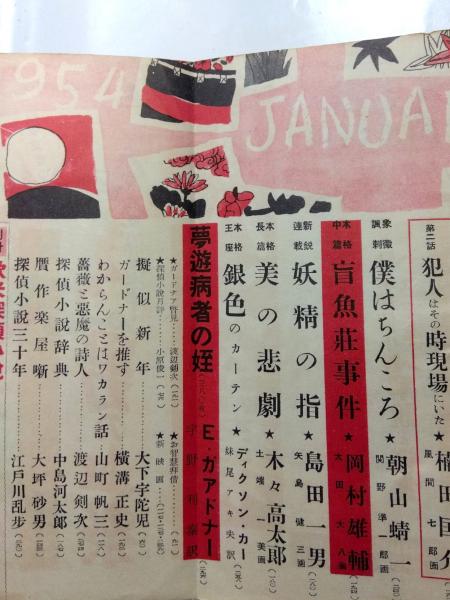 1954
JANUAR
第二話
犯人はその時現場にいた★楠田匡介
風間七郎画
象徴諷刺
僕はちんころ★朝山蜻一
関野準一郎画
本格中篇
盲魚荘事件★岡村雄輔
太田大八画
新鋭連載
妖精の指★島田一男
矢島健三画
本格長篇
美の悲劇★木々高太郎
土端一美画
本格王座
銀色のカーテン★ディクソン・カー
妹尾アキ夫訳
夢遊病者の姪
E・ガアドナー
宇野利泰訳
★ガードナア瞥見
渡辺剣次
★お智慧拝借
★探偵小説月評
小原俊一
★新映画
擬似新年
大下宇陀児
ガードナーを推す
横溝正史
わからんことはワカラン話
山町帆三
薔薇と悪魔の詩人
渡辺剣次
探偵小説辞典
中島河太郎
贋作楽屋噺
大坪砂男
探偵小説三十年
江戸川乱歩